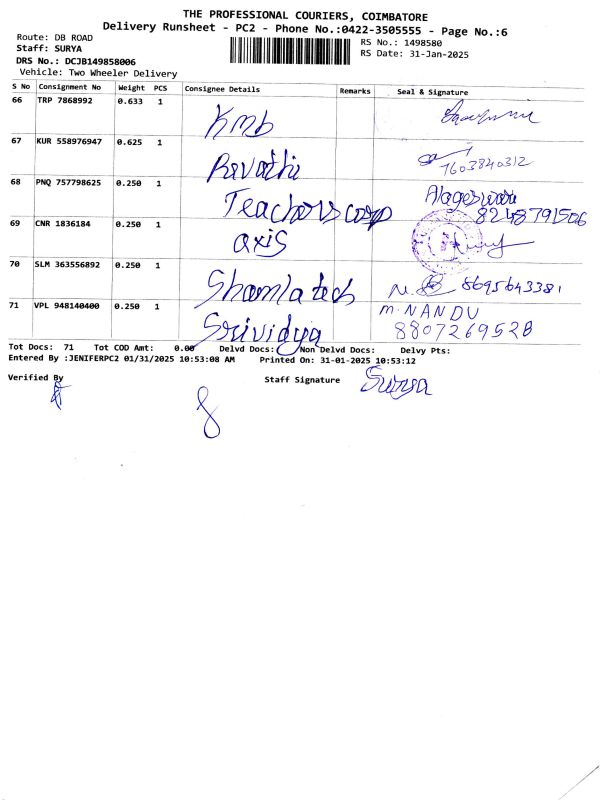 THE PROFESSIONAL COURIERS, COIMBATORE
Delivery Runsheet - PC2 - Phone No.:0422-3505555 - Page No.:6
Route: DB ROAD
RS No.: 1498580
Staff: SURYA
RS Date: 31-Jan-2025
DRS No.: DCJB149858006
Vehicle: Two Wheeler Delivery
S No Consignment No Weight PCS Consignee Details Remarks Seal & Signature
66 TRP 7868992 0.633 1 Kmb
67 KUR 558976947 0.625 1 Revathi 7603840312
68 PNQ 757798625 0.250 1 Teachers corp Alageswari 8248791506
69 CNR 1836184 0.250 1 axis
70 SLM 363556892 0.250 1 Shamla tech 8695643381
71 VPL 948140400 0.250 1 Srividya M. NANDU 8807269528
Tot Docs: 71 Tot COD Amt: 0.00 Delvd Docs: Non Delvd Docs: Delvy Pts:
Entered By :JENIFERPC2 01/31/2025 10:53:08 AM Printed On: 31-01-2025 10:53:12
Verified By
Staff Signature Surya